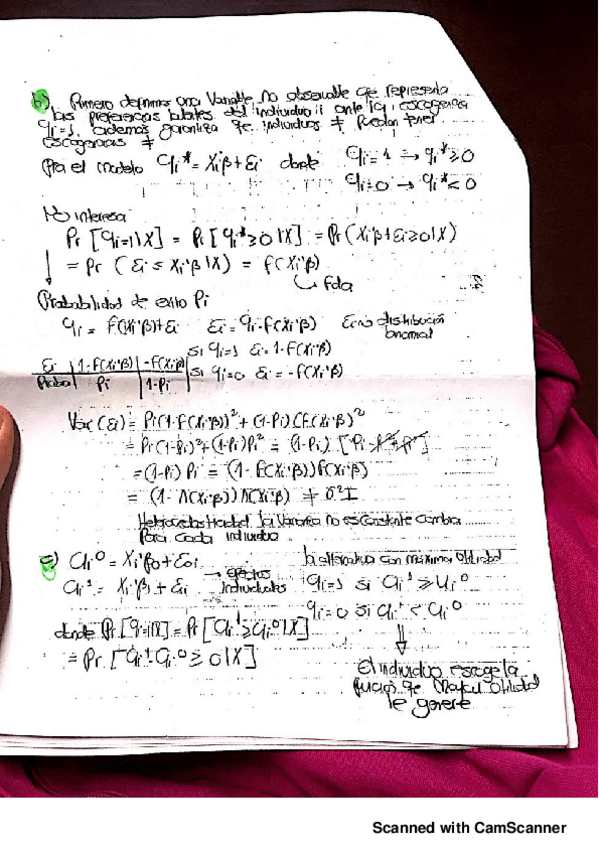 b) Primero definimos una Variable No observable qe representa
las preferencias latentes del individuo i ante la escogencia
qi=1, además garantiza qe individuos ≠ puedan tener
escogencias ≠
Para el modelo qi* = Xi'β + εi donde qi=1 → qi*≥0
qi=0 → qi*<0
No interesa
Pr [qi=1|X] = Pr[qi*≥0|X] = Pr(Xi'β+εi≥0|X)
= Pr (εi ≤ Xi'β|X) = F(Xi'β)
fda
Probabilidad de exito Pi
qi = F(Xi'β)+εi εi = qi-F(Xi'β) distribución
binomial
si qi=1 εi = 1-F(Xi'β)
εi | 1-F(Xi'β) | -F(Xi'β) si qi=0 εi = -F(Xi'β)
Probal | Pi | 1-Pi
Var(εi) = Pi(1-F(Xi'β))² + (1-Pi)(F(Xi'β))²
= Pi(1-Pi)²+(1-Pi)Pi² = (1-Pi) [Pi
=(1-Pi) Pi = (1-F(Xi'β))F(Xi'β)
= (1-Λ(Xi'β))Λ(Xi'β) ≠ σ²I
Heterocedasticidad la Varianza no es Constante Cambia
Para cada individuo
c) Ui⁰ = Xi'β0+ε0i la alternativa con máxima utilidad
Ui¹ = Xi'β1+εi → efectos individuales qi=1 si Ui¹ ≥ Ui⁰
qi=0 si Ui¹ < Ui⁰
donde Pr[qi=1|X] = Pr[Ui¹≥Ui⁰|X]
= Pr [Ui¹-Ui⁰ ≥ 0|X]
El individuo escoge la
qe Mayor Utilidad
le genere
Scanned with CamScanner